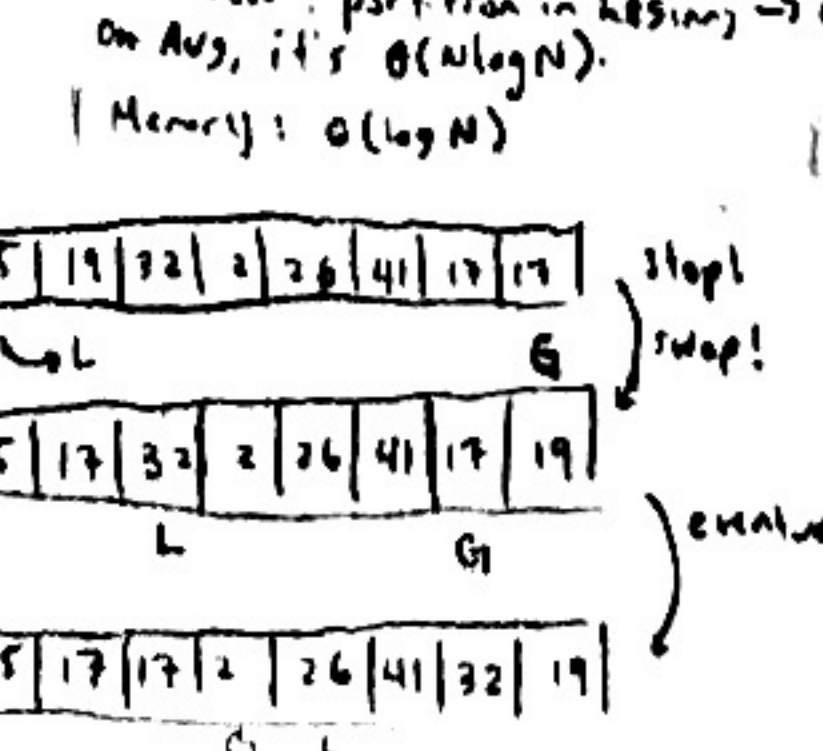 partition in
on Avg, it's θ(NlogN).
Memory: θ(log N)
5 | 19 | 32 | 2 | 26 | 41 | 17 | 17 stop!
L G swap!
5 | 17 | 32 | 2 | 26 | 41 | 17 | 19
L G
5 | 17 | 17 | 2 | 26 | 41 | 32 | 19
G L